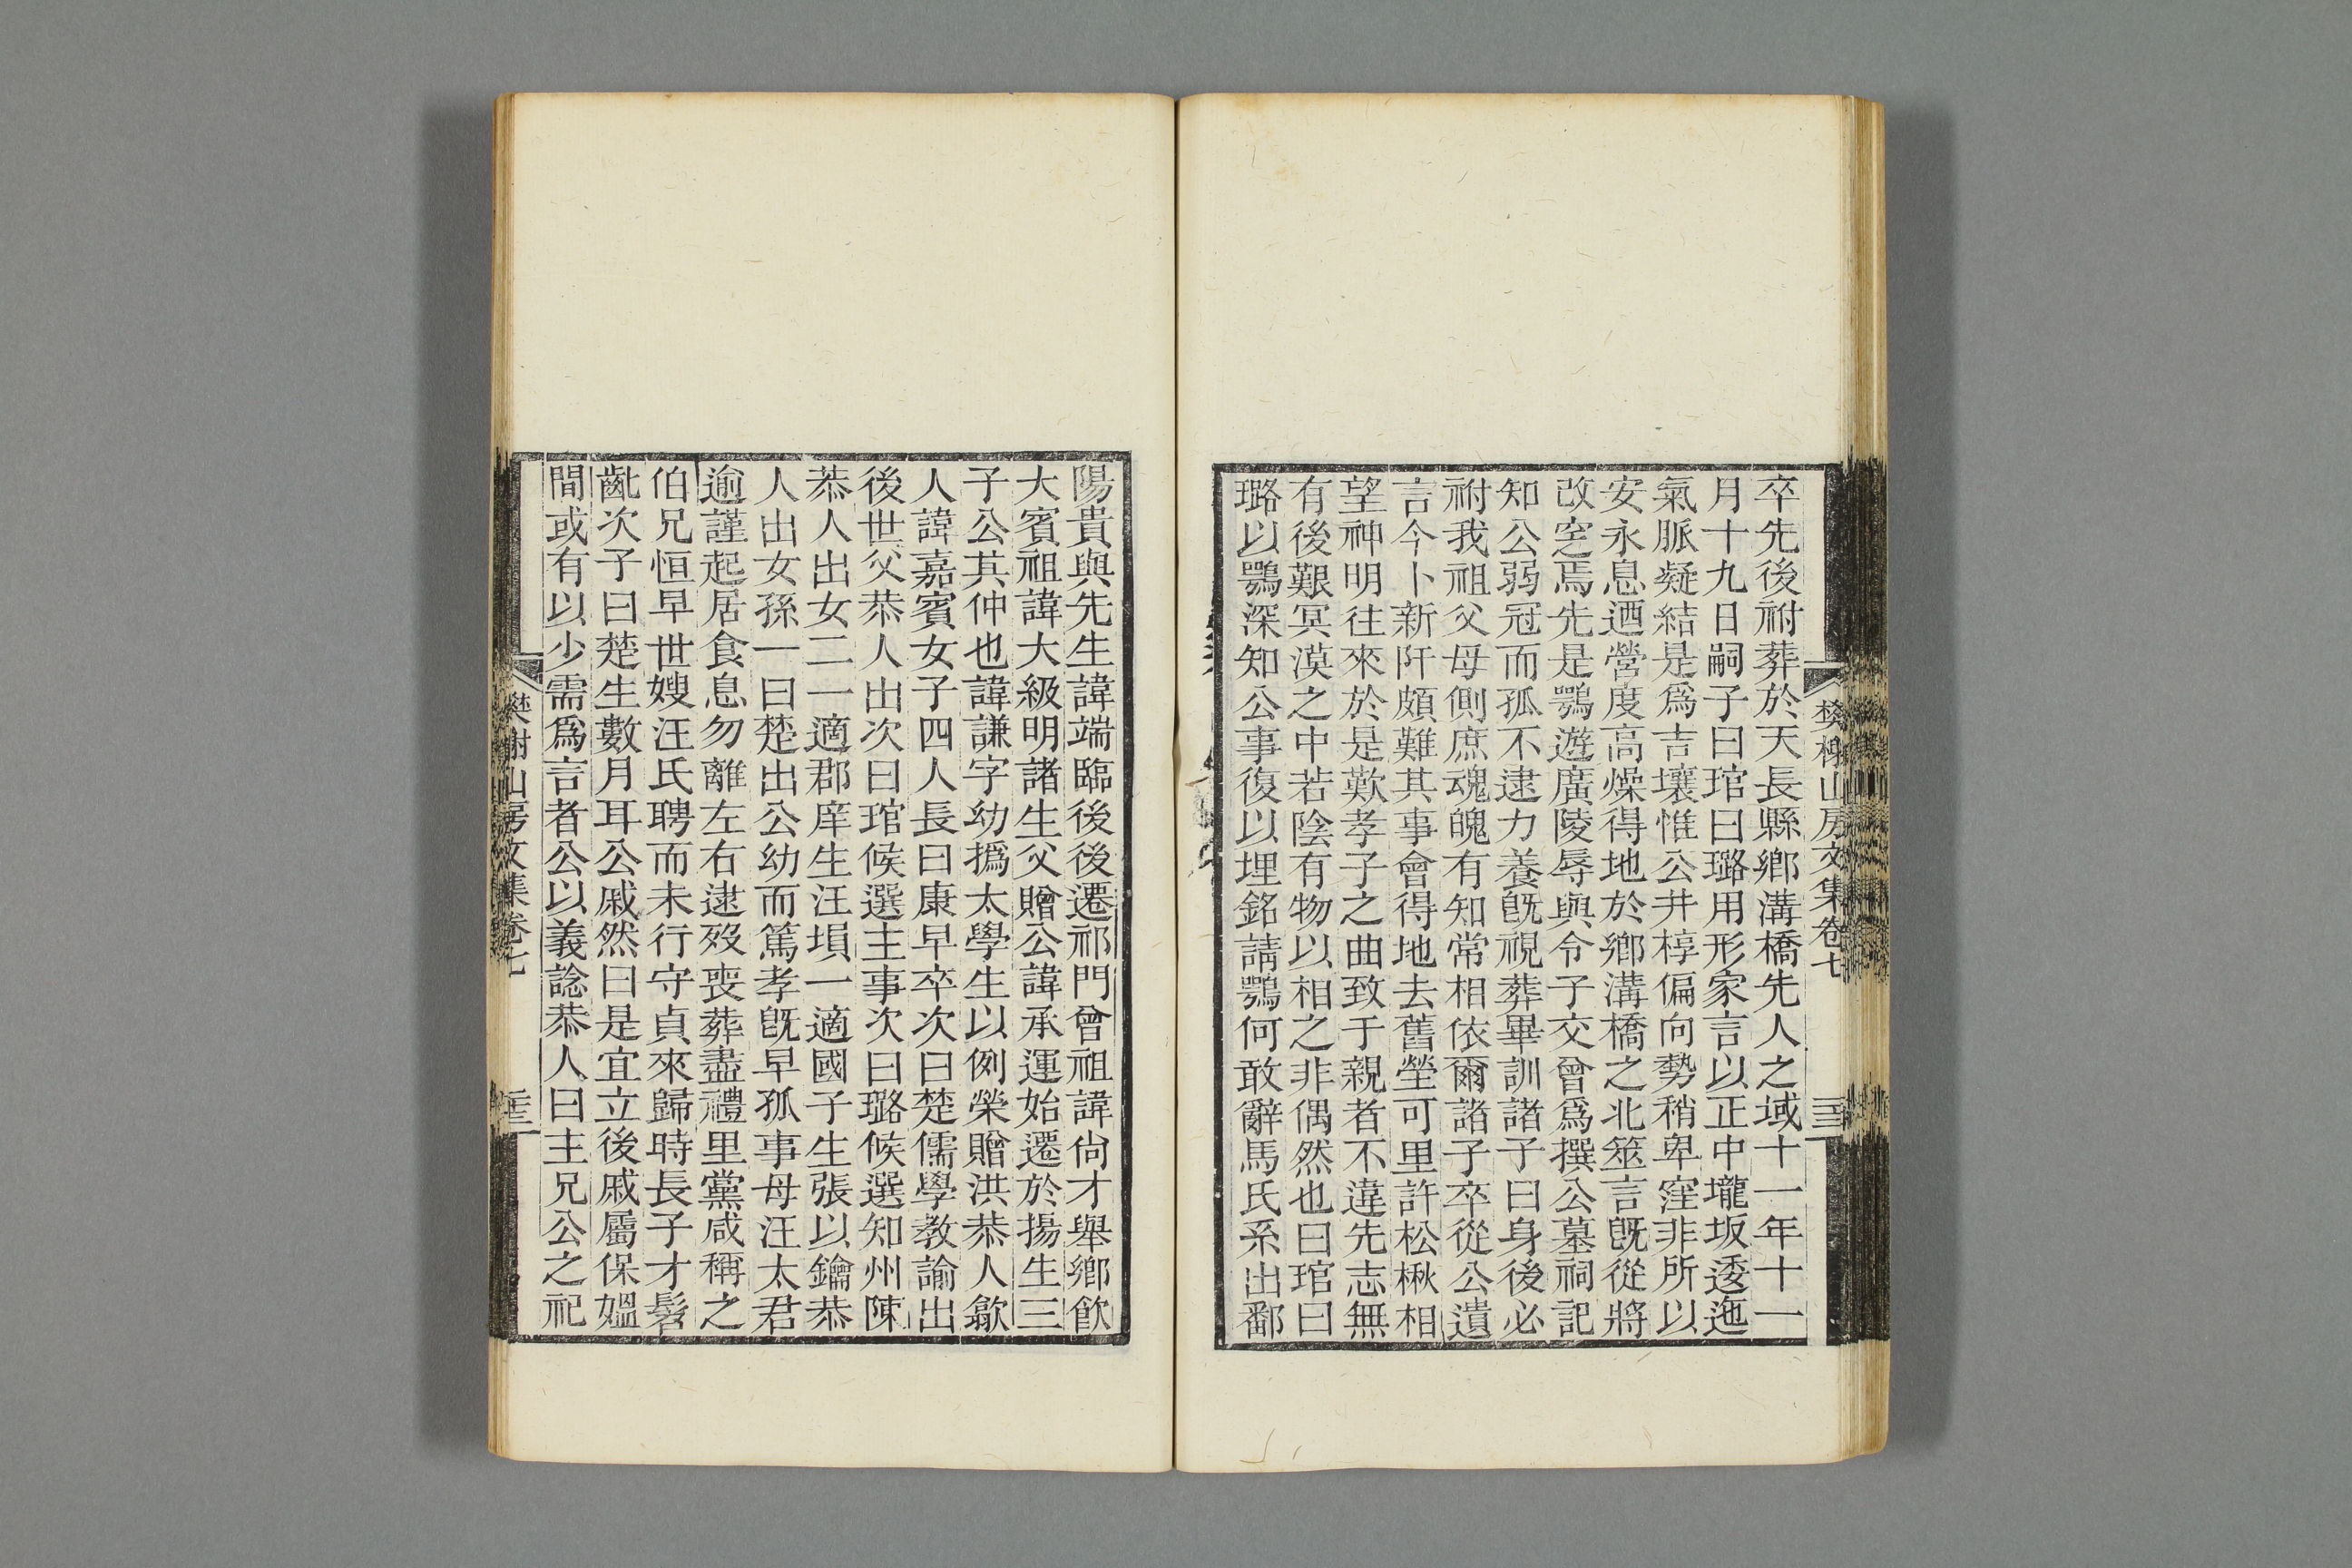 卒先後祔葬於天長縣鄉溝橋先人之域十一年十一
月十九日嗣子曰琯曰璐用形家言以正中壠坂逶迤
氣脈凝結是爲吉壤惟公井椁偏向勢稍卑窪非所以
安永息迺營度高燥得地於鄉溝橋之北筮言旣從將
改窆焉先是鶚遊廣陵辱與令子交曾爲撰公墓祠記
知公弱冠而孤不逮力養旣視葬畢訓諸子曰身後必
祔我祖父母側庶魂魄有知常相依爾諸子卒從公遺
言今卜新阡頗難其事會得地去舊塋可里許松楸相
望神明往來於是歎孝子之曲致于親者不違先志無
有後艱冥漠之中若陰有物以相之非偶然也曰琯曰
璐以鶚深知公事復以埋銘請鶚何敢辭馬氏系出鄱
樊榭山房文集卷七
陽貴與先生諱端臨後後遷祁門曾祖諱尙才舉鄉飮
大賓祖諱大級明諸生父贈公諱承運始遷於揚生三
子公其仲也諱謙字幼撝太學生以例榮贈洪恭人歙
人諱嘉賓女子四人長曰康早卒次曰楚儒學教諭出
後世父恭人出次曰琯候選主事次曰璐候選知州陳
恭人出女二一適郡庠生汪塤一適國子生張以鑰恭
人出女孫一曰楚出公幼而篤孝旣早孤事母汪太君
逾謹起居食息勿離左右逮歿喪葬盡禮里黨咸稱之
伯兄恒早世嫂汪氏聘而未行守貞來歸時長子才髫
齔次子曰楚生數月耳公戚然曰是宜立後戚屬保媼
間或有以少需爲言者公以義諗恭人曰主兄公之祀
樊榭山房文集卷七